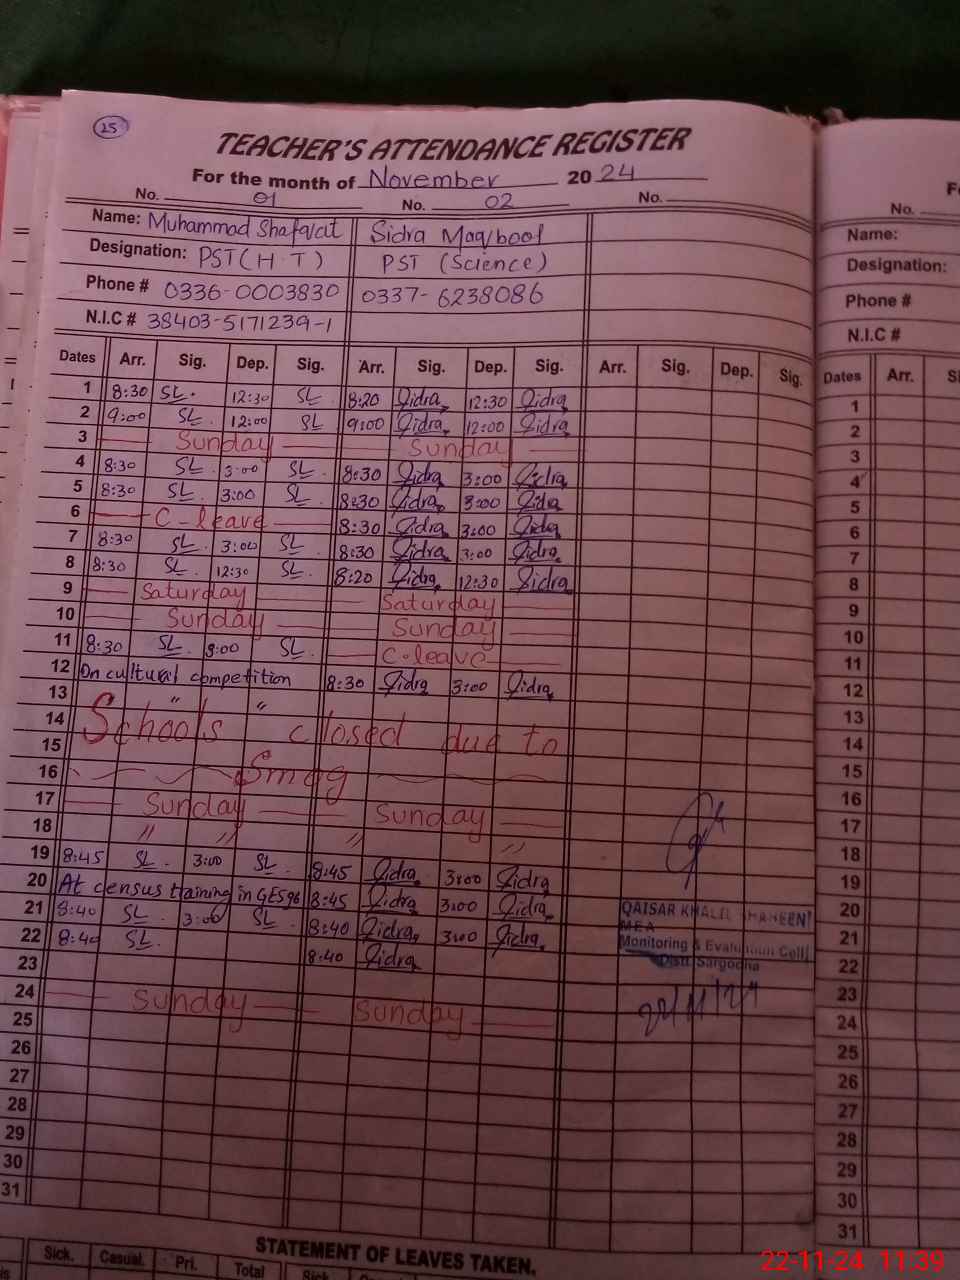 25
TEACHER'S ATTENDANCE REGISTER
For the month of November 2024
No. 01 No. 02 No.
Name: Muhammad Shafqat Sidra Maqbool
Designation: PST (H.T) PST (Science)
Phone # 0336-0003830 0337-6238086
N.I.C # 38403-5171239-1
Dates Arr. Sig. Dep. Sig. Arr. Sig. Dep. Sig. Arr. Sig. Dep. Sig.
1 8:30 SL. 12:30 SL 8:20 Sidra 12:30 Sidra
2 9:00 SL 12:00 SL 9:00 Sidra 12:00 Sidra
3 Sunday Sunday
4 8:30 SL. 3:00 SL. 8:30 Sidra 3:00 Sidra
5 8:30 SL. 3:00 SL. 8:30 Sidra 3:00 Sidra
6 C-leave 8:30 Sidra 3:00 Sidra
7 8:30 SL. 3:00 SL. 8:30 Sidra 3:00 Sidra
8 8:30 SL. 12:30 SL. 8:20 Sidra 12:30 Sidra
9 Saturday Saturday
10 Sunday Sunday
11 8:30 SL. 3:00 SL. C-leave
12 On cultural competition 8:30 Sidra 3:00 Sidra
13 " "
14 Schools closed due to
15
16 Smog
17 Sunday Sunday
18 " " " "
19 8:45 SL. 3:00 SL 8:45 Sidra 3:00 Sidra
20 At census training in GES96 8:45 Sidra 3:00 Sidra
21 8:40 SL. 3:00 SL. 8:40 Sidra 3:00 Sidra
22 8:40 SL. 8:40 Sidra
23
24 Sunday Sunday
25
26
27
28
29
30
31
QAISAR KHALIL SHAHEEN
MEA
Monitoring & Evaluation Cell
Distt. Sargodha
22/11/24
STATEMENT OF LEAVES TAKEN.
Sick. Casual. Pri. Total Sick.
No.
Name:
Designation:
Phone #
N.I.C #
Dates Arr.
1
2
3
4
5
6
7
8
9
10
11
12
13
14
15
16
17
18
19
20
21
22
23
24
25
26
27
28
29
30
31
22-11-24 11:39